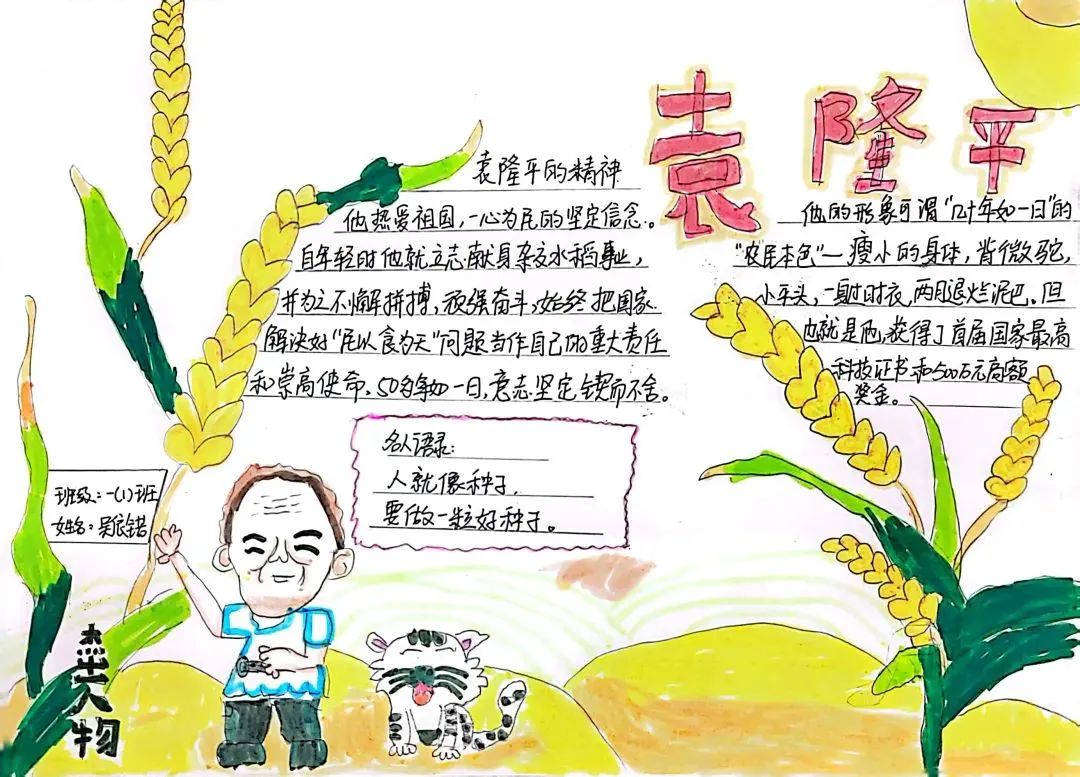 袁隆平
袁隆平的精神
他热爱祖国，一心为民的坚定信念。
自年轻时他就立志献身杂交水稻事业，
并为之不懈拼搏，顽强奋斗，始终把国家
解决好“民以食为天”问题当作自己的重大责任
和崇高使命，50多年如一日，意志坚定，锲而不舍。
他的形象可谓“几十年如一日”的
“农民本色”—瘦小的身体，背微驼，
小平头，一身旧衣，两腿烂泥巴。但
也就是他，获得了首届国家最高
科技证书和500万元高额
奖金。
名人语录：
人就像种子，
要做一粒好种子。
班级：一(1)班
姓名：吴宸锘
人物